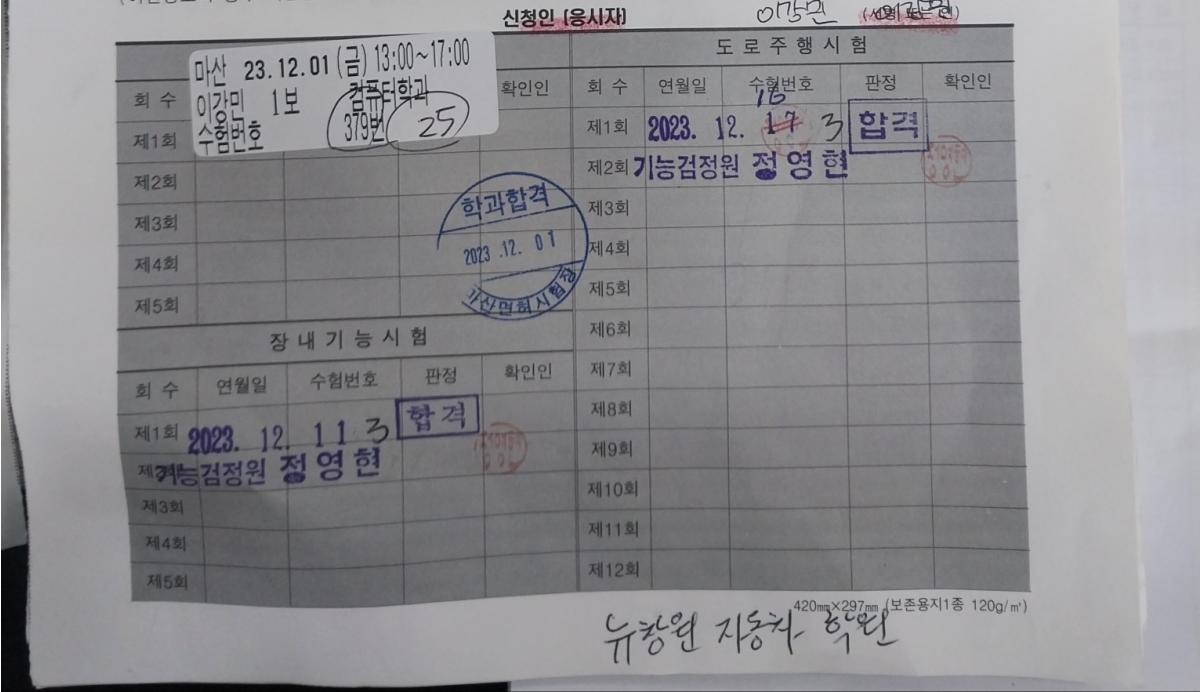 신청인 (응시자) 이강민
마산 23.12.01 (금) 13:00~17:00
이강민 1보 컴퓨터학과
수험번호 379번 25
회 수 확인인
제1회
제2회
제3회
제4회
제5회
학과합격
2023.12.01
마산면허시험장
장내기능시험
회 수 연월일 수험번호 판정 확인인
제1회 2023. 12. 11 3 합격
기능검정원 정영현
제3회
제4회
제5회
도로주행시험
회 수 연월일 수험번호 판정 확인인
16
제1회 2023. 12. 17 3 합격
제2회 기능검정원 정영현
제3회
제4회
제5회
제6회
제7회
제8회
제9회
제10회
제11회
제12회
420㎜×297㎜ (보존용지1종 120g/㎡)
뉴창원 자동차 학원